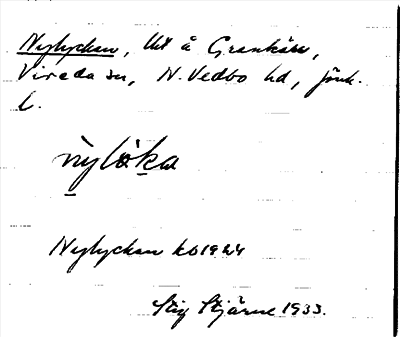 Nylyckan, lht å Grankärr,
Vireda sn, N. Vedbo hd, Jönk.
L.
nỳlöka
Nylyckan kb 1924
Stig Stjärne 1933.